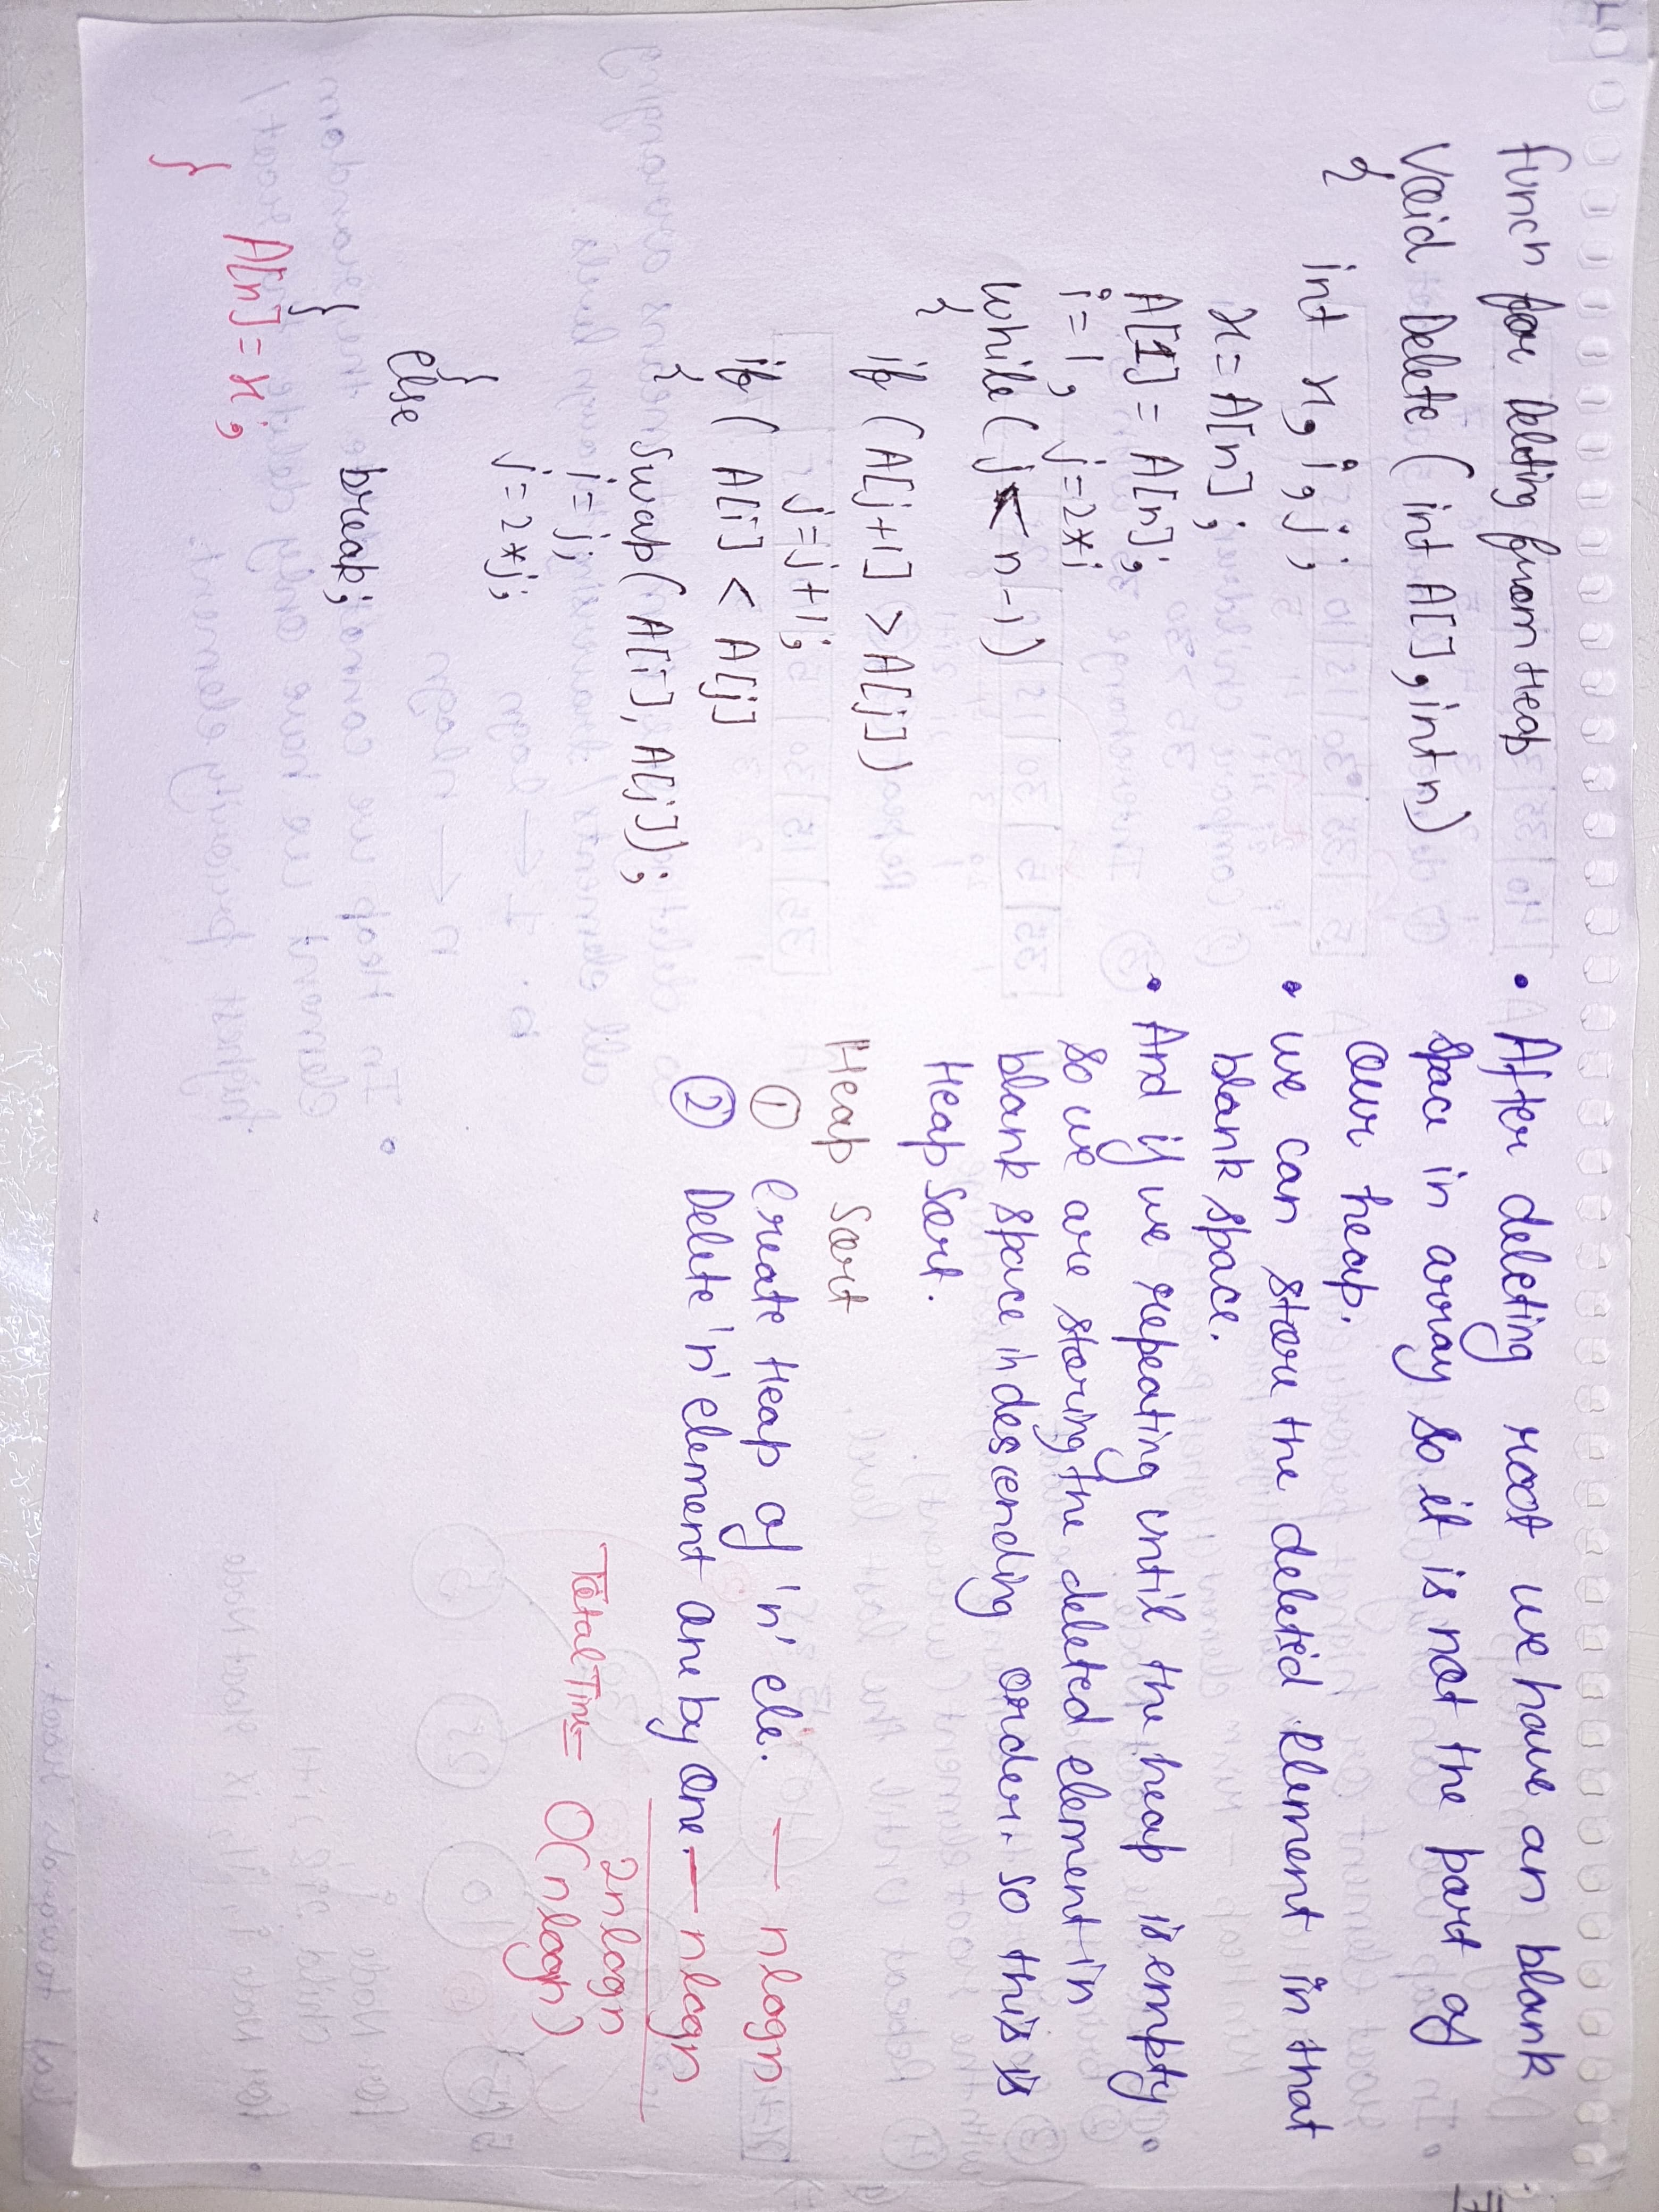 funcn for Deleting from Heap
Void Delete ( int A[], int n)
{ int x, i, j;
x = A[n];
A[1] = A[n];
i=1, j=2*i
while ( j < n-1)
{
if ( A[j+1] > A[j])
j=j+1;
if ( A[i] < A[j]
{ Swap( A[i], A[j]);
i= j;
j= 2*j;
}
else
break;
}
A[n]= x;
}
• After deleting root we have an blank
space in array so it is not the part of
our heap.
• we can store the deleted Element in that
blank space.
• And if we repeating until the heap is empty
so we are storing the deleted element in
blank space in descending order. so this is
Heap Sort.
Heap Sort
① Create Heap of 'n' ele. — nlogn
② Delete 'n' element one by one. — nlogn
2nlogn
Total Time = O(nlogn)